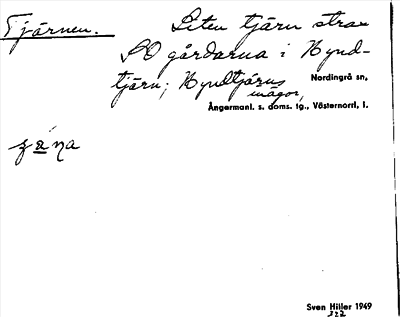 Tjärnen. Liten tjärn strax
SO gårdarna i Hynd-
tjärn; Hyndtjärns
ägor,
Nordingrå sn,
Ångermanl. s. doms. tg., Västernorrl. l.
Sven Hiller 1949
322